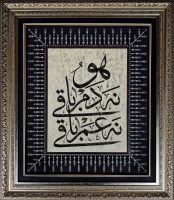 هو
نه دم باقی
نه غم باقی